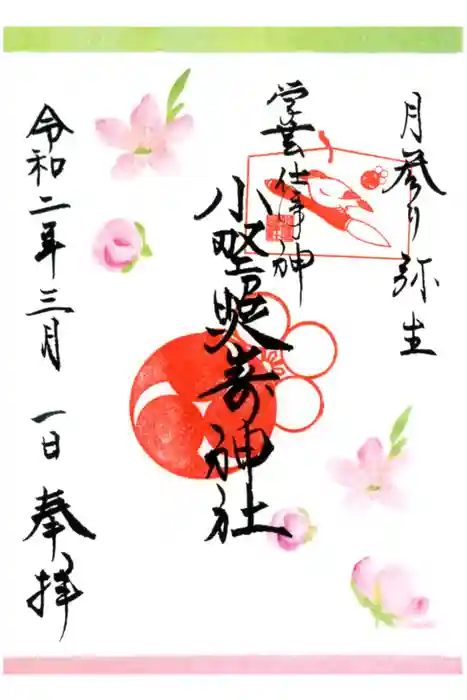 月参り 弥生
学芸仕事神
小野照崎神社
令和二年三月 一日 奉拝